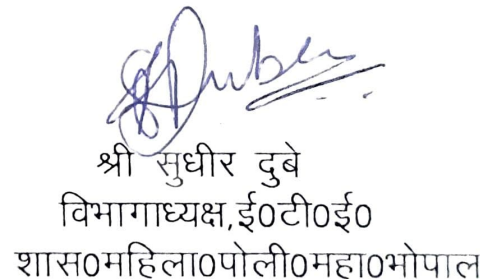 SDubey
श्री सुधीर दुबे
विभागाध्यक्ष,ई0टी0ई0
शास0महिला0पोली0महा0भोपाल